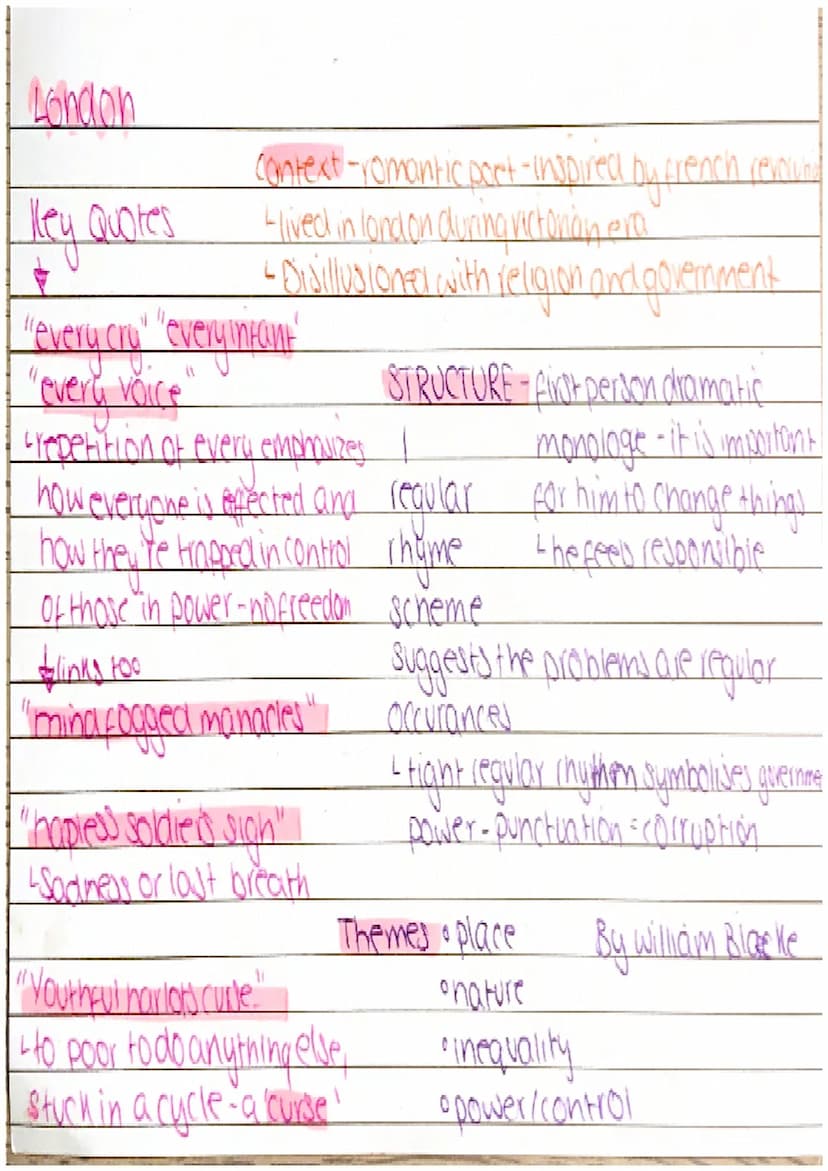 London
Context - romantic poet - inspired by french
Key Quotes
↳ lived in london during victorian era
↳ Disillusioned with religion and government
"every cry" "every infant"
"every voice"
↳ repetition of every emphasizes
how everyone is effected and
how they're trapped in control
of those in power - no freedom
↓ links too
"mind fogged manacles"
"hapless soldiers sigh"
↳ Sadness or last breath
"Youthful harlots curse"
↳ to poor to do anything else,
stuck in a cycle - a 'curse'
STRUCTURE - first person dramatic
monologe - it is important
for him to change things
↳ he feels responsible
regular
rhyme
scheme
suggests the problems are regular
occurances
↳ tight regular symbolises
power - punctuation = corruption
Themes • place
• nature
• inequality
• power/control
By William Blake